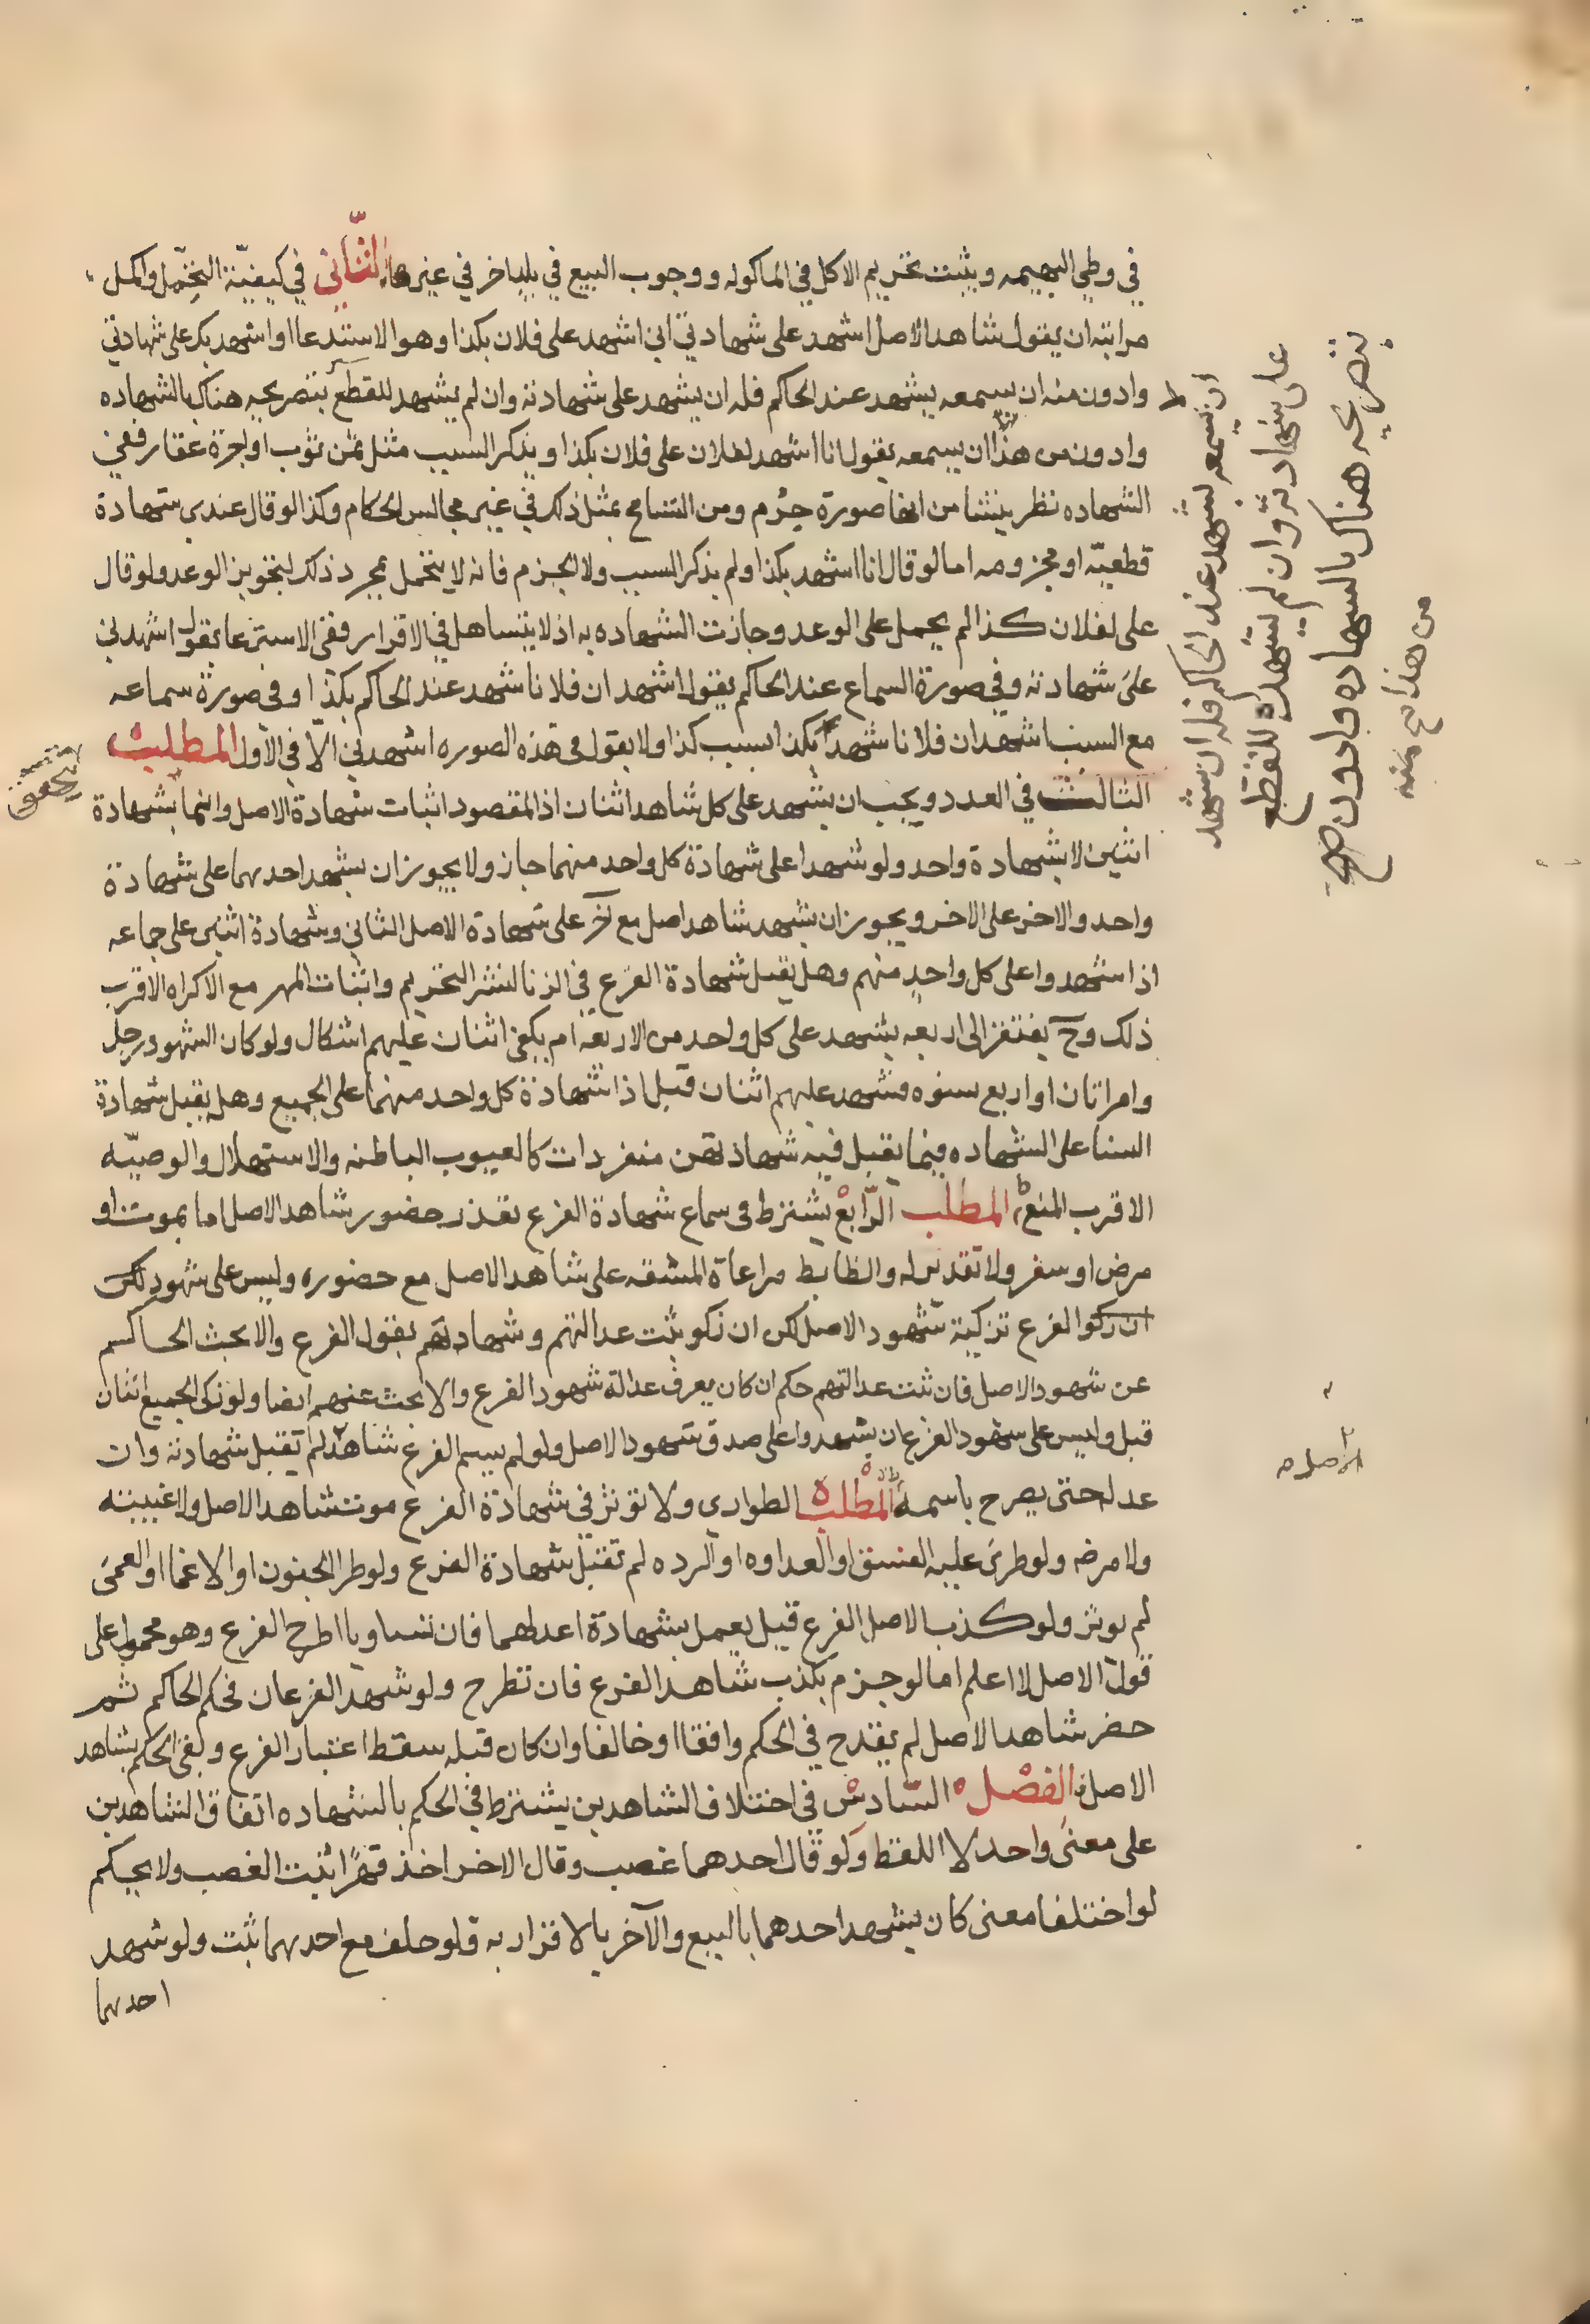 في وطي البهيمه ويثبت تحريم الاكل في الماكوله ووجوب البيع في بلد اخر في غيرها الثاني في كيفيّة التحمّل واكمل
مراتبه ان يقول شاهد الاصل اشهد على شهادتي اني اشهد على فلان بكذا وهو الاستدعا او اشهدك على شهادتي
وادون منه ان يسمعه يشهد عند الحاكم فله ان يشهد على شهادته وان لم يشهد للقطع بتصريحه هناك بالشهاده
وادون من هذا ان يسمعه يقول انا اشهد لفلان على فلان بكذا ويذكر السبب مثل ثمن ثوب او اجرة عقار ففي
الشهاده نظر ينشا من انها صورة جزم ومن التسامح بمثل ذلك في غير مجالس الحكام وكذا لو قال عندي شهادة
قطعيّة او مجزومه اما لو قال انا اشهد بكذا ولم يذكر السبب ولا الجزم فانه لا يتحمل بمجرد ذلك لتجويز الوعد ولو قال
على لفلان كذا لم يحمل على الوعد وجازت الشهاده به اذ لا يتساهل في الاقرار ففي الاسترعا يقول اشهدني
على شهادته وفي صورة السماع عند الحاكم يقول اشهد ان فلانا شهد عند الحاكم بكذا وفي صورة سماعه
مع السبب اشهد ان فلانا شهد بكذا بسبب كذا ولا يقول في هذه الصوره اشهدني الّا في الاول المطلب
الثالث في العدد ويجب ان يشهد على كل شاهد اثنان اذ المقصود اثبات شهادة الاصل وانما بشهادة
اثنين لا بشهادة واحد ولو شهدا على شهادة كل واحد منهما جاز ولا يجوز ان يشهد احدهما على شهادة
واحد والاخر على الاخر ويجوز ان يشهد شاهد اصل مع آخر على شهادة الاصل الثاني وشهادة اثنين على جماعه
اذا شهدوا على كل واحدٍ منهم وهل يقبل شهادة الفرع في الزنا لنشر التحريم واثبات المهر مع الاكراه الاقرب
ذلك وح يفتقر الى اربعه يشهد على كل واحد من الاربعه ام يكفي اثنان عليهم اشكال ولو كان الشهود رجل
وامراتان او اربع نسوه فشهد عليهم اثنان قبل اذا شهادة كل واحد منهما على الجميع وهل يقبل شهادة
النسا على الشهاده فيما يقبل فيه شهادتهن منفردات كالعيوب الباطنه والاستهلال والوصيّه
الاقرب المنع المطلب الرّابع يشترط في سماع شهادة الفرع تعذر حضور شاهد الاصل اما بموت او
مرض او سفر ولا تقدير له والظابط مراعاة المشقه على شاهد الاصل مع حضوره وليس على شهود لكن
ان زكوا الفرع تزكية شهود الاصل لكن ان زكو ثبت عدالتهم وشهادتهم بقول الفرع والا بحث الحاكم
عن شهود الاصل فان ثبت عدالتهم حكم ان كان يعرف عدالة شهود الفرع والا بحث عنهم ايضا ولو زكى الجميع اثنان
قبل وليس على شهود الفرع ان يشهدوا على صدق شهود الاصل ولو لم يسم الفرع شاهد لم تقبل شهادته وان
عدله حتى يصرح باسمه المطلب الطواري ولا تؤثر في شهادة الفرع موت شاهد الاصل ولا غيبته
ولا مرضه ولو طرى عليه الفسق او العداوه او الرده لم تقبل شهادة الفرع ولو طر الجنون او الاغما او العمى
لم يوثر ولو كذب الاصل الفرع قيل يعمل بشهادة اعدلهما فان تساويا اطرح الفرع وهو محمول على
قول الاصل لا اعلم اما لو جزم بكذب شاهد الفرع فان تطرح ولو شهد الفرعان فحكم الحاكم ثم
حضر شاهد الاصل لم يقدح في الحكم وافقا او خالفا وان كان قبله سقط اعتبار الفرع وبقى الحكم بشاهد
الاصل الفصل السّادس في اختلاف الشاهدين يشترط في الحكم بالشهاده اتفاق الشاهدين
على معنى واحد لا اللفظ ولو قال احدهما غصب وقال الاخر اخذ قهرًا ثبت الغصب ولا يحكم
لو اختلفا معنى كان يشهد احدهما بالبيع والآخر بالاقرار به ولو حلف مع احدهما ثبت ولو شهد
احدهما
ان يسمعه يشهد عند الحاكم فله ان يشهد
على شهادته وان لم يشهده للقطع
بتصريحه هناك بالشهاده وادون صح
من هذا صح منه
الاصل